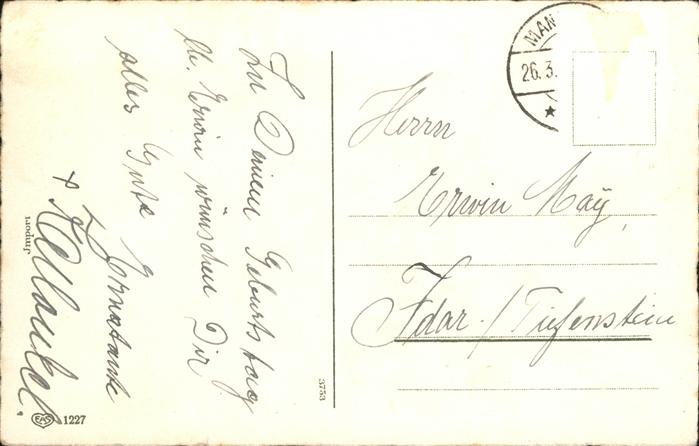 Zu Deinem Geburtstag
lb. Erwin wünschen Dir
alles Gute
Import
EAS 1227
3753
MAN
26.3.
Herrn
Erwin May,
Idar-/Tiefenstein